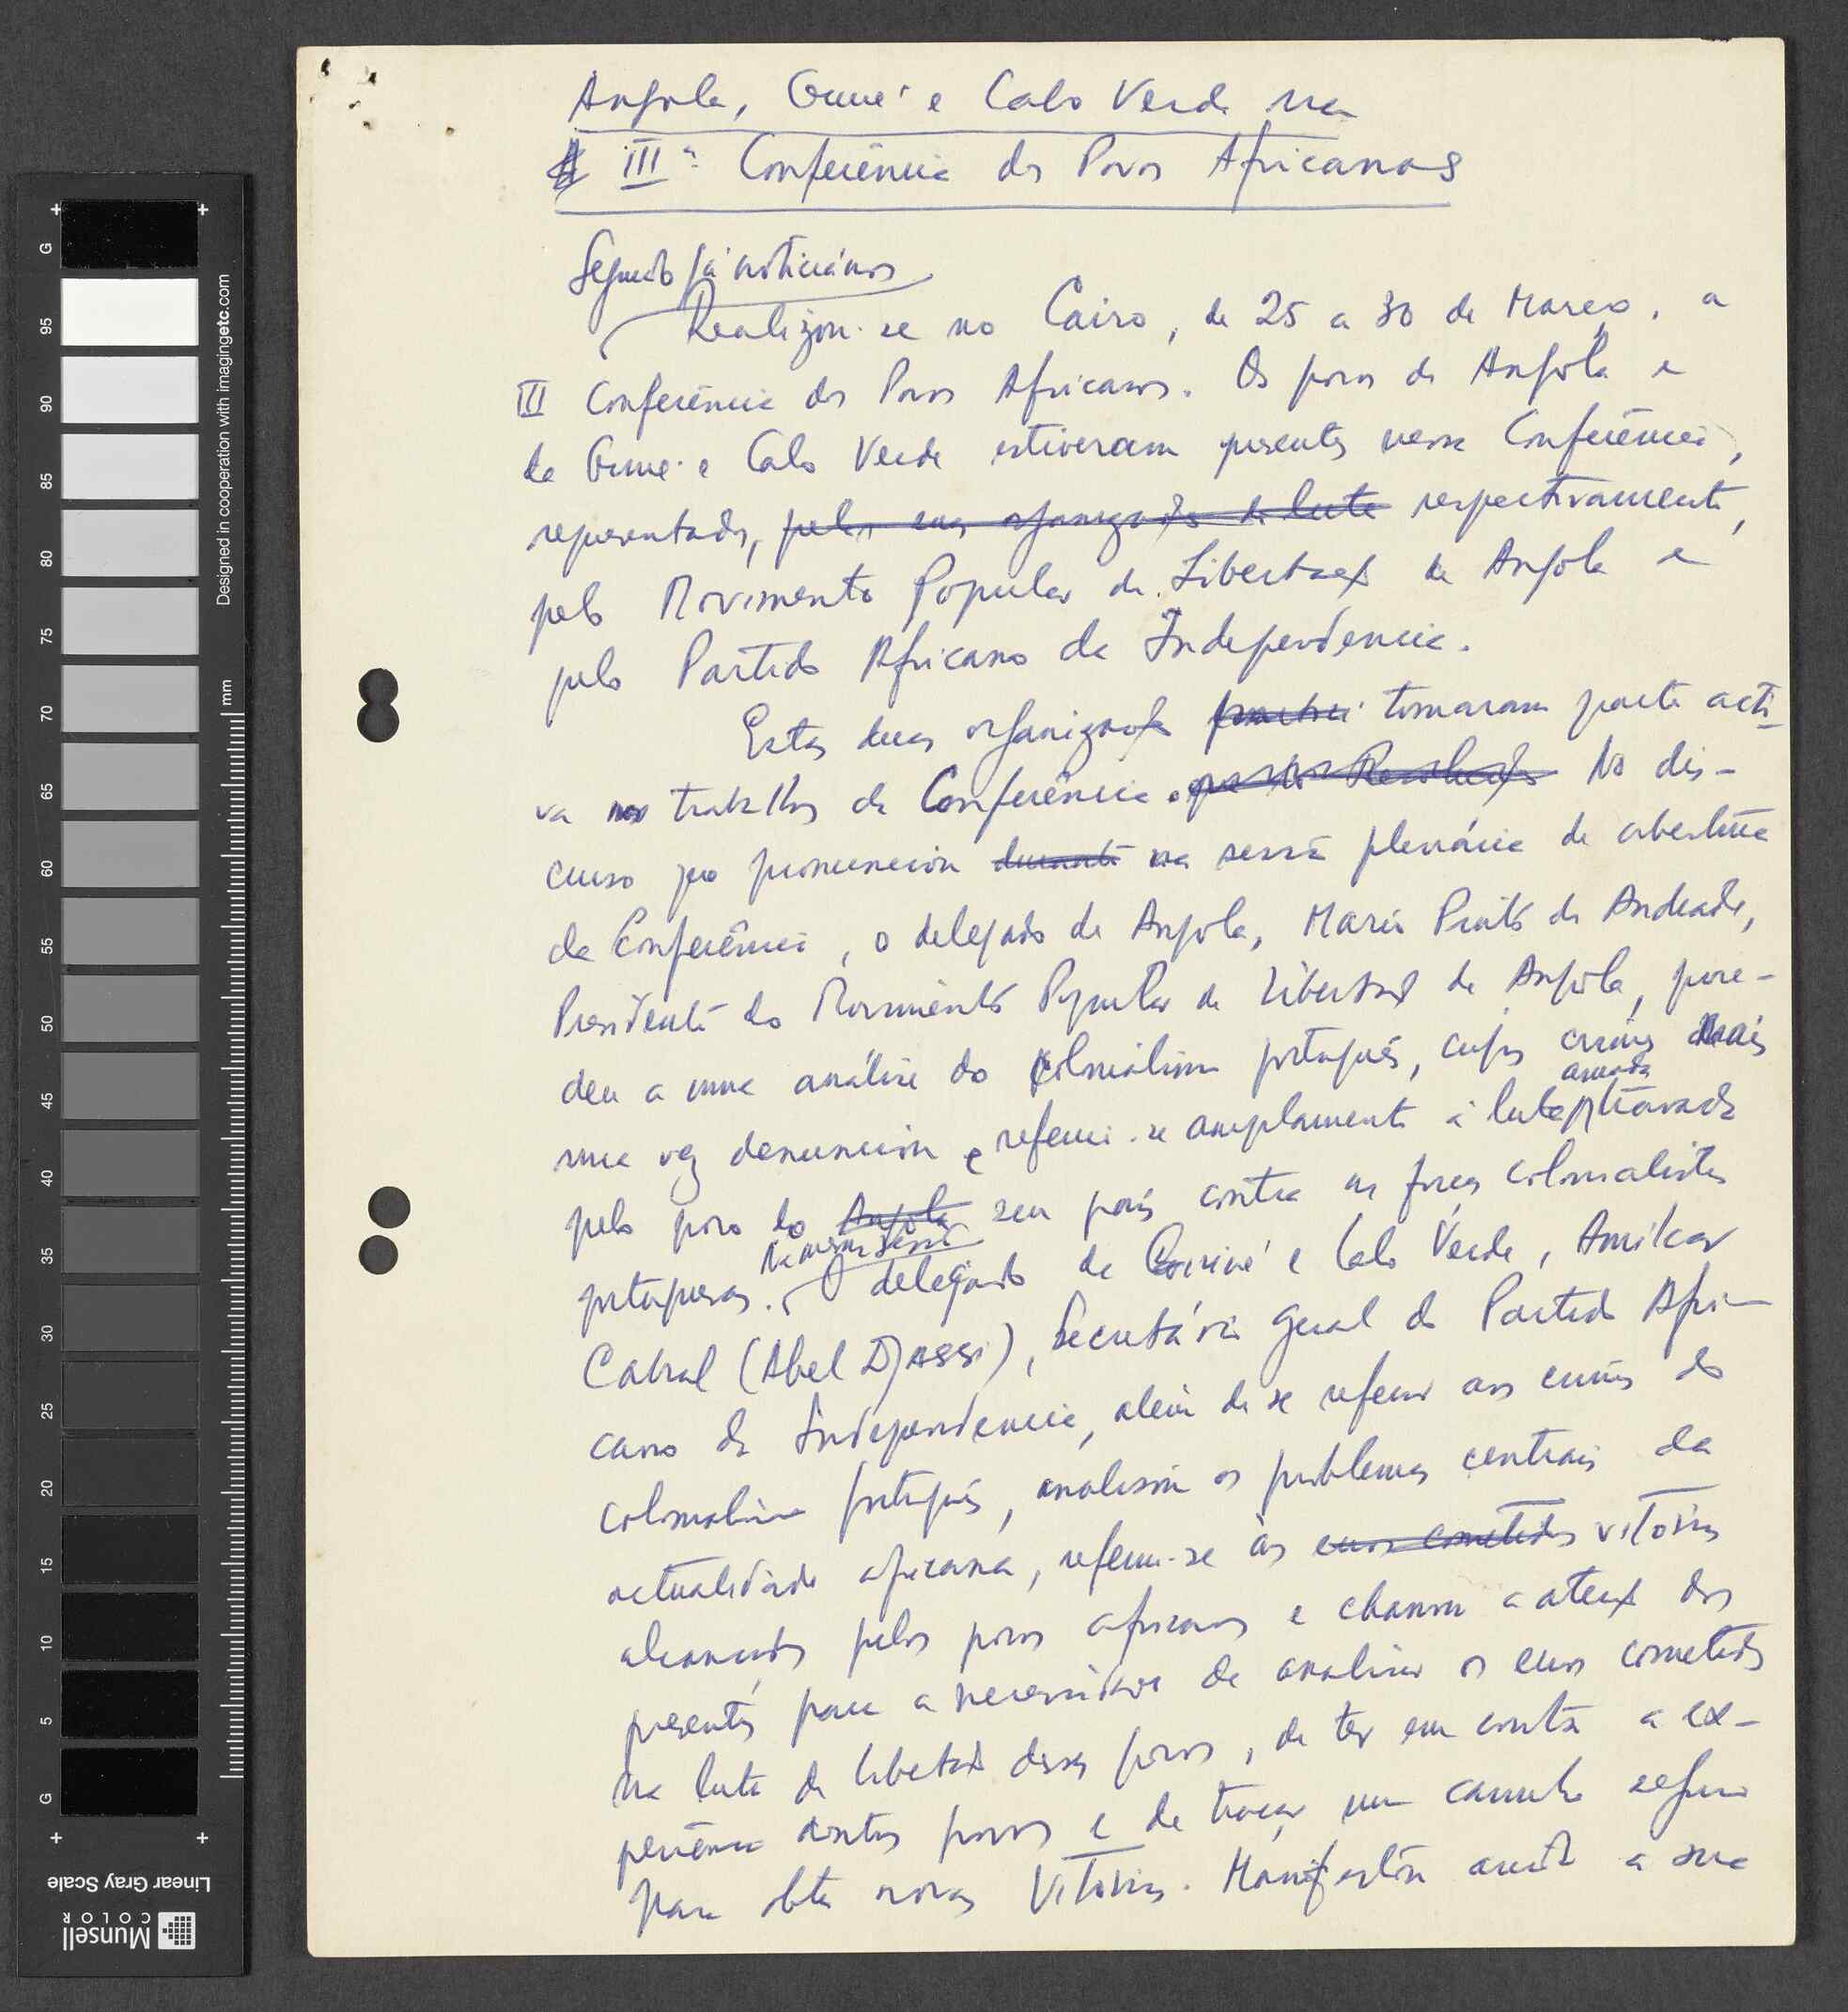 Angola, Guiné e Cabo Verde na
IIIª Conferência dos Povos Africanos
Segundo já noticiámos
Realizou-se no Cairo, de 25 a 30 de Março, a
III Conferência dos Povos Africanos. Os povos de Angola e
da Guiné e Cabo Verde estiveram presentes nessa Conferência,
representados, pelas suas organizações de luta respectivamente,
pelo Movimento Popular de Libertação de Angola e
pelo Partido Africano da Independência.
Estas duas organizações tomaram parte acti-
va nos trabalhos da Conferência. No dis-
curso que pronunciou durante na sessão plenária de abertura
da Conferência, o delegado de Angola, Mário Pinto de Andrade,
Presidente do Movimento Popular de Libertação de Angola, proce-
deu a uma análise do colonialismo português, cujos crimes mais
armada
uma vez denunciou e referiu-se amplamente à luta travada
pelo povo do Angola seu país contra as forças colonialistas
Na mesma sessão
portuguesas. O delegado da Guiné e Cabo Verde, Amílcar
Cabral (Abel Djassi), Secretário Geral do Partido Afri-
cano da Independência, além de se referir aos crimes do
colonialismo português, analisou os problemas centrais da
actualidade africana, referiu-se às erros cometidos vitórias
alcançadas pelos povos africanos e chamou a atenção dos
presentes para a necessidade de analisar os erros cometidos
na luta de libertação desses povos, de ter em conta a ex-
periência doutros povos e de traçar um caminho seguro
para obter novas vitórias. Manifestou ainda a sua
G 95 90 85 80 75 70 65 60 55 50 45 40 35 30 25 20 15 10 5 G
mm
Designed in cooperation with imagingetc.com
Linear Gray Scale
Munsell
COLOR